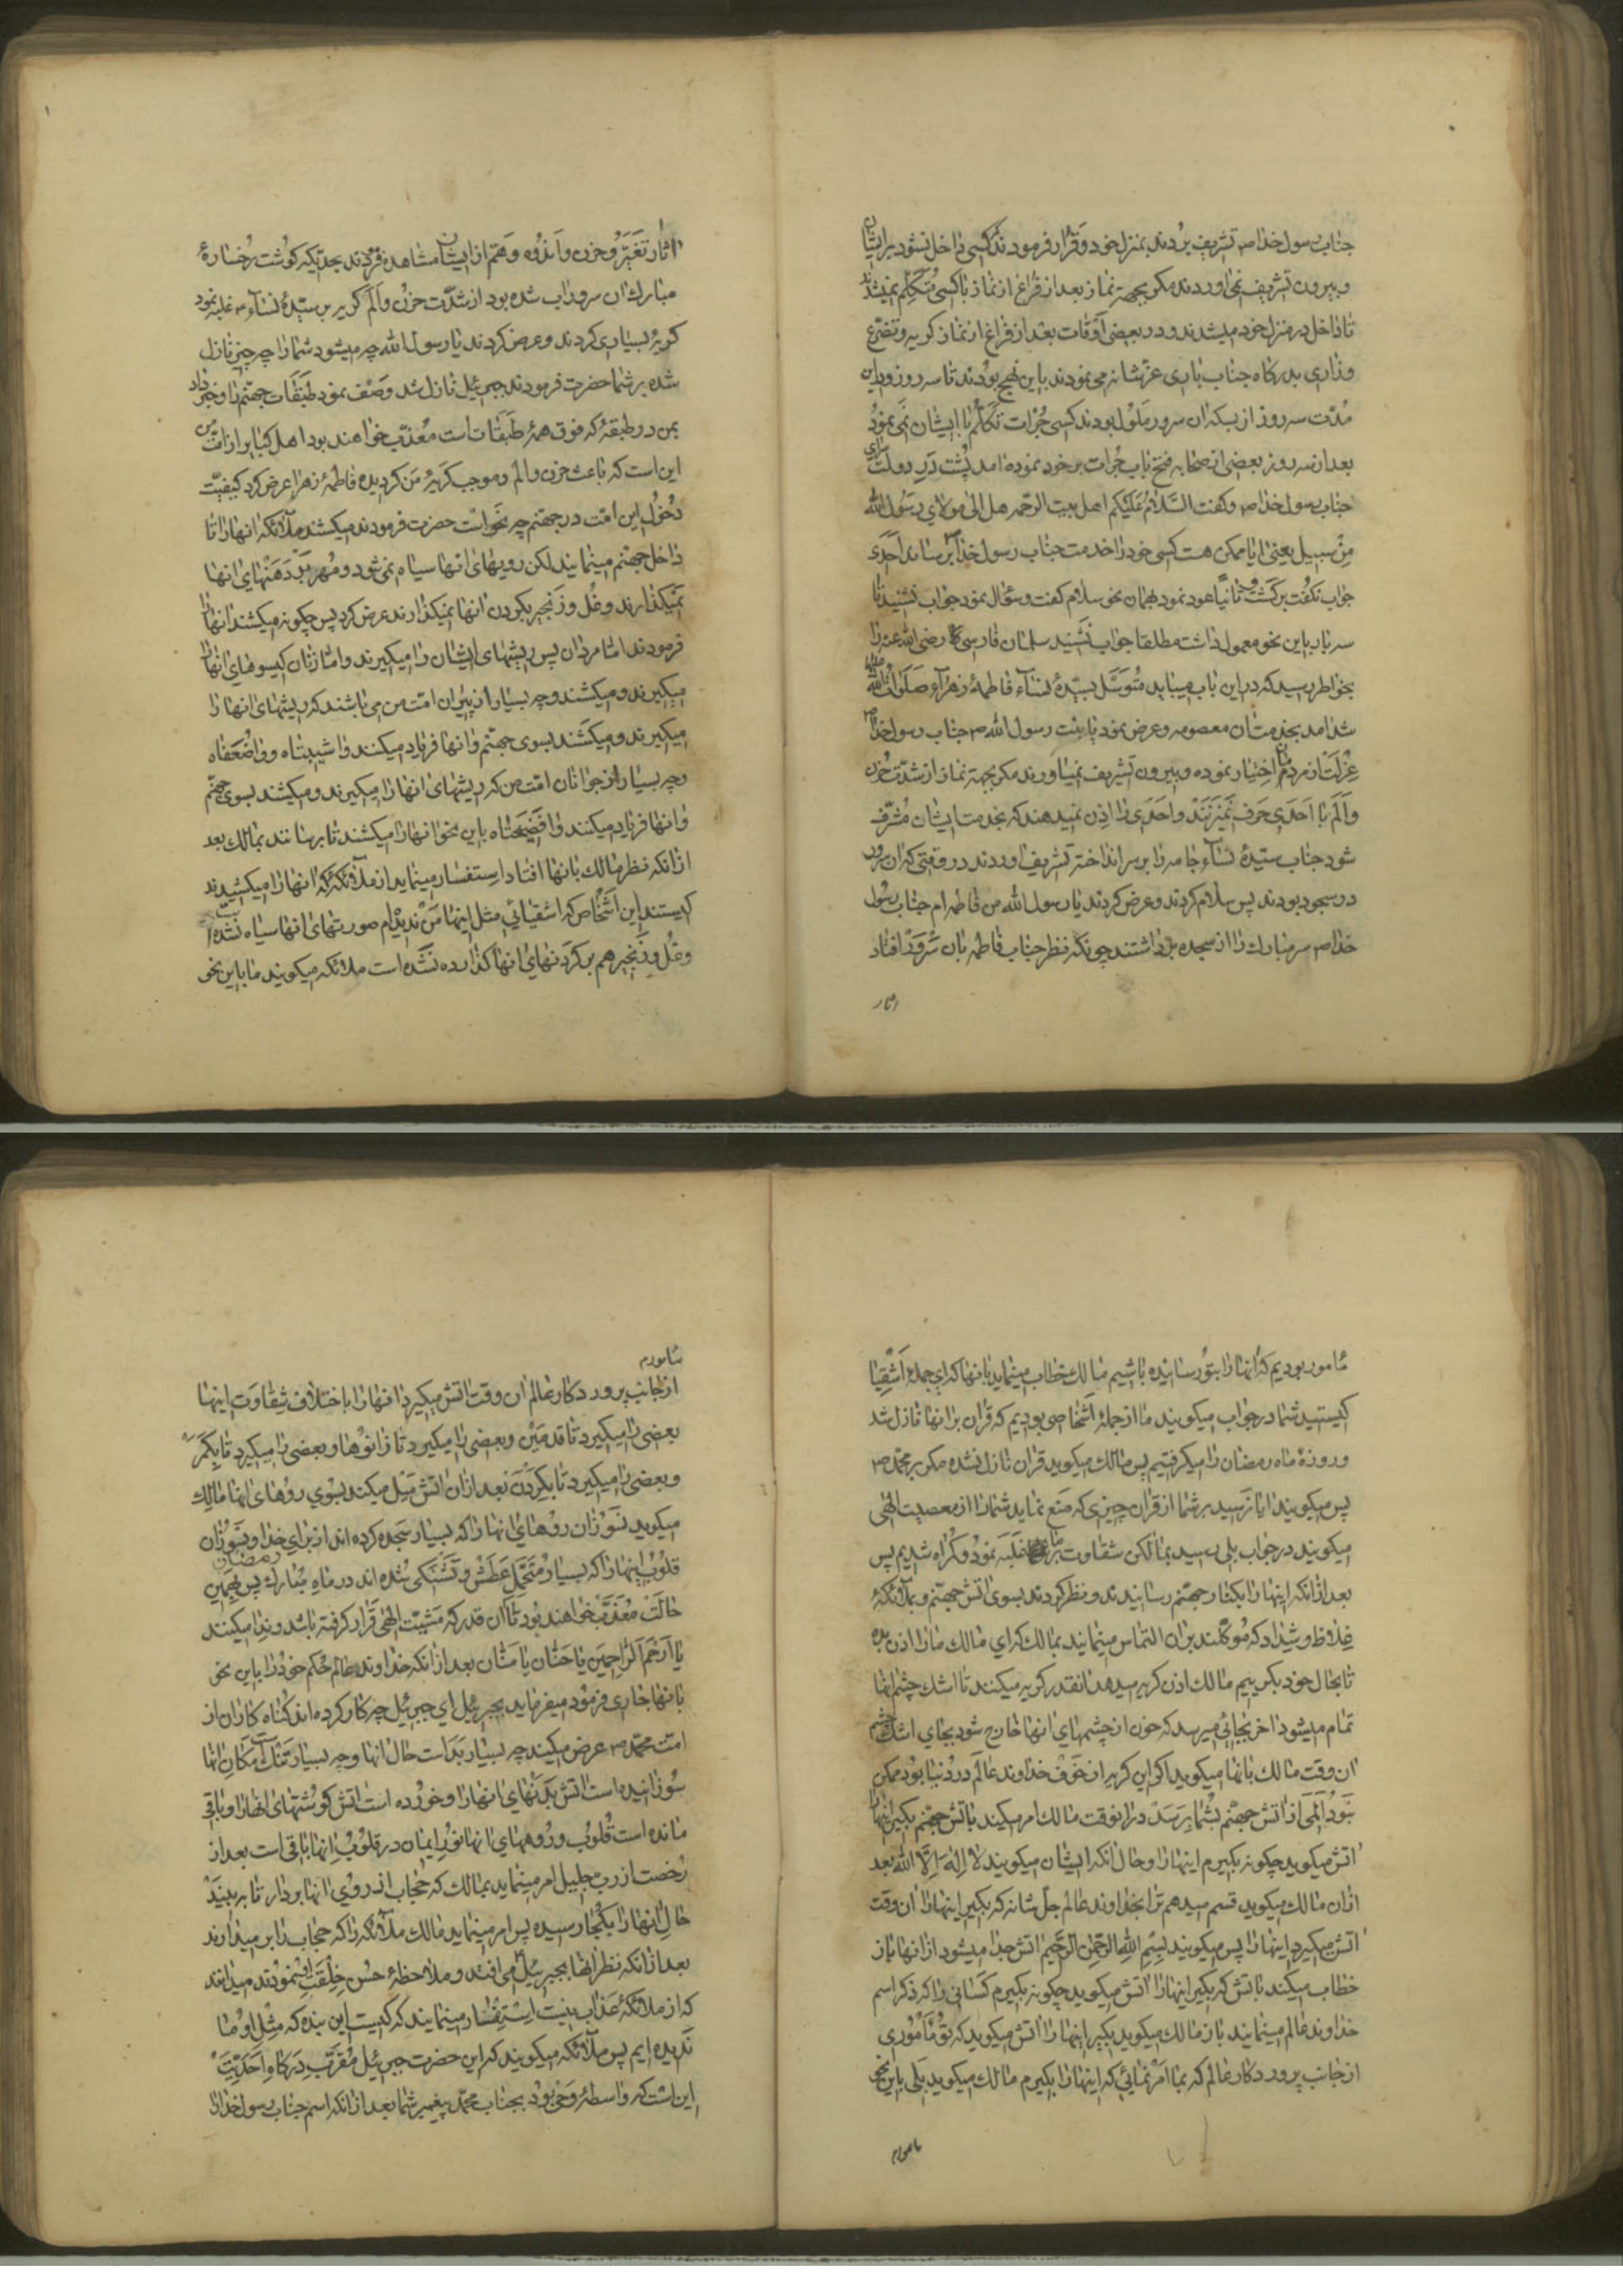 جناب رسول خدا صم تشریف بردند بمنزل خود و قرار فرمودند کسی داخل نشود بر ایشان
و بیرون تشریف نمی اوردند مکر بجهة نماز بعد از فراغ از نماز با کسی متکلم نمیشدند
تا داخل در منزل خود میشدند و در بعضی اوقات بعد از فراغ از نماز کریه و تضرع
و زاری بدرکاه جناب باری عز شانه می نمودند باین نهج بودند تا سه روز و در این
مدت سه روز از بسکه ان سرور ملول بودند کسی جرات تکلم با ایشان نمی نمود
بعد از سه روز بعضی از صحابه فتح باب جرات بر خود نموده امد پشت در دولت سرای
جناب رسول خدا صم و کفت السلام علیکم اهل بیت الرحمه هل الی مولای رسول الله
من سبیل یعنی ایا ممکن هست کسی خود را خدمت جناب رسول خدا برساند احدی
جواب نکفت برکشت و ثانیا عود نمود بهمان نحو سلام کفت و سؤال نمود جواب نشنید تا
سه بار باین نحو معمول داشت مطلقا جواب نشنید سلمان فارسی رضی الله عنه را
بخواطر رسید که در این باب میباید متوسل بسیدهٔ نساء فاطمهٔ زهراء صلوات الله علیها
شد امد بخدمت ان معصومه و عرض نمود یا بنت رسول الله صم جناب رسول خدا صم
عزلت از مردمان اختیار نموده و بیرون تشریف نمیاورند مکر بجهة نماز از شدت حزن
و الم با احدی حرف نمیزنند و احدی را اذن نمیدهند که بخدمت ایشان مشرف
شود جناب سیدهٔ نساء جامه را بر سر انداخته تشریف اوردند در وقتی که ان سرور
در سجود بودند پس سلام کردند و عرض کردند یا رسول الله من فاطمه ام جناب رسول
خدا صم سر مبارک را از سجده برداشتند چونکه نظر جناب فاطمه بان سرور افتاد
اثار
اثار تغیر و حزن و اندوه و هم از ایشان مشاهده فرمودند بحدیکه کوشت رخسارهٔ
مبارک ان سرور اب شده بود از شدت حزن و الم کریه بر سیدهٔ نساء س غلبه نمود
کریهٔ بسیاری کردند و عرض کردند یا رسول الله چه میشود شما را چه چیز نازل
شده بر شما حضرت فرمودند جبرئیل نازل شد وصف نمود طبقات جهنم را و خبر داد
بمن در طبقهٔ که فوق همهٔ طبقات است معذب خواهند بود اهل کبایر از امت من
این است که باعث حزن و الم و موجب کریهٔ من کردیده فاطمهٔ زهرا عرض کرد کیفیت
دخول این امت در جهنم چه نحو است حضرت فرمودند میکشند ملائکه انها را تا
داخل جهنم مینمایند لکن رویهای انها سیاه نمی شود و مهر بر دهنهای انها
نمیکذارند و غل و زنجیر بکردن انها نمیکذارند عرض کرد پس چکونه میکشند انها را
فرمودند اما مردان پس ریشهای ایشان را میکیرند و اما زنان کیسوهای انها را
میکیرند و میکشند و چه بسیار از پیران امت من می باشند که ریشهای انها را
میکیرند و میکشند بسوی جهنم و انها فریاد میکنند وا شیبتاه و وا ضعفاه
و چه بسیار از جوانان امت من که ریشهای انها را میکیرند و میکشند بسوی جهنم
و انها فریاد میکنند وا فضیحتاه باین نحو انها را میکشند تا برسانند بمالک بعد
از انکه نظر مالک بانها افتاد استفسار مینماید از ملائکهٔ که انها را میکشیدند
کیستند این اشخاص که اشقیائی مثل اینها من ندیدم صورتهای انها سیاه نشده است
و غل و زنجیر هم بر کردنهای انها کذارده نشده است ملائکه میکویند ما باین نحو
مامور بودیم که انها را بتو رسانیده باشیم مالک خطاب مینماید بانها که ای جملهٔ اشقیا
کیستید شما در جواب میکویند ما از جملهٔ اشخاصی بودیم که قران بر انها نازل شد
و روزهٔ ماه رمضان را میکرفتیم پس مالک میکوید قران نازل نشده مکر بر محمد صم
پس میکویند ایا نرسید بر شما از قران چیزی که منع نماید شما را از معصیت الهی
میکویند در جواب بلی رسید بما لکن شقاوت بر ما غلبه نمود و کمراه شدیم پس
بعد از انکه اینها را بکنار جهنم رسانیدند و نظر کردند بسوی اتش جهنم و بملائکهٔ
غلاظ و شداد که موکلند بران التماس مینمایند بمالک که ای مالک ما را اذن بده
تا بحال خود بکرییم مالک اذن کریه میدهد انقدر کریه میکنند تا اشک چشم انها
تمام میشود اخر بجائی میرسد که خون از چشمهای انها خارج شود بجای اشک چشم
ان وقت مالک بانها میکوید اکر این کریه از خوف خداوند عالم در دنیا بود ممکن
نبود المی از اتش جهنم بشما برسد درانوقت مالک امر میکند باتش جهنم بکیر انها را
اتش میکوید چکونه بکیرم اینها را و حال انکه ایشان میکویند لا إله إلا الله بعد
ازان مالک میکوید قسم میدهم ترا بخداوند عالم جل شانه که بکیر اینها را ان وقت
اتش میکیرد اینها را پس میکویند بسم الله الرحمن الرحیم اتش جدا میشود از انها باز
خطاب میکند باتش که بکیر اینها را اتش میکوید چکونه بکیرم کسانی را که ذکر اسم
خداوند عالم مینمایند باز مالک میکوید بکیر اینها را اتش میکوید که تو ماموری
از جانب پروردکار عالم که بما امر نمائی که اینها را بکیرم مالک میکوید بلی باین نحو
مامورم
مامورم
از جانب پروردکار عالم ان وقت اتش میکیرد انها را باختلاف شقاوت اینها
بعضی را میکیرد تا قدمین و بعضی را میکیرد تا زانوها و بعضی را میکیرد تا بکمر
و بعضی را میکیرد تا بکردن بعد ازان اتش میل میکند بسوی روهای انها مالک
میکوید نسوزان روهای انها را که بسیار سجده کرده اند از برای خدا و نسوزان
قلوب اینها را که بسیار متحمل عطش و تشنکی شده اند در ماه مبارک رمضان پس بهمین
حالت معذب خواهند بود تا ان قدر که مشیت الهی قرار کرفته باشد و ندا میکنند
یا ارحم الراحمین یا حنان یا منان بعد از انکه خداوند عالم حکم خود را باین نحو
بانها جاری فرمود میفرماید بجبرئیل ای جبرئیل چه کار کرده اند کناه کاران از
امت محمد صم عرض میکند چه بسیار بد است حال انها و چه بسیار تنک است مکان انها
سوزانیده است اتش بدنهای انها را و خورده است اتش کوشتهای انها را و باقی
مانده است قلوب و روههای انها نور ایمان در قلوب انها باقی است بعد از
رخصت از رب جلیل امر مینماید بمالک که حجاب از روی انها بردار تا به بیند
حال انها را بکجا رسیده پس امر مینماید مالک ملائکه را که حجاب را بر میدارند
بعد از انکه نظر انها بجبرئیل می افتد و ملاحظهٔ حسن خلقت نمودند میدانند
که از ملائکهٔ عذاب نیست استفسار مینمایند که کیست این بنده که مثل او ما
ندیده ایم پس ملائکه میکویند که این حضرت جبرئیل مقرب درکاه احدیت
این است که واسطهٔ وحی بود بجناب محمد پیغمبر شما بعد از انکه اسم جناب رسول خدا را